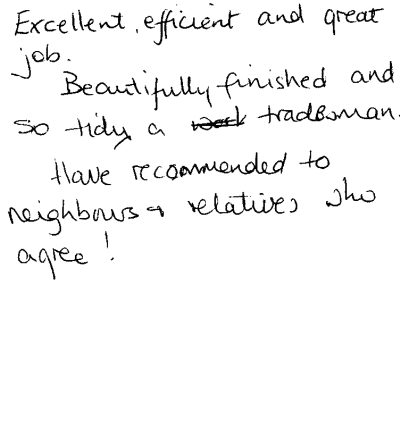 Excellent, efficient and great
job.
Beautifully finished and
so tidy a work tradesman.
Have recommended to
neighbours & relatives who
agree!